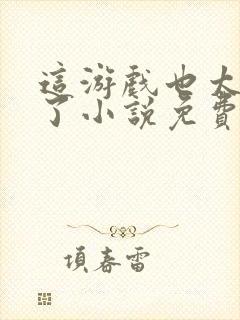 這游戲也太
了小說免費
項春雷